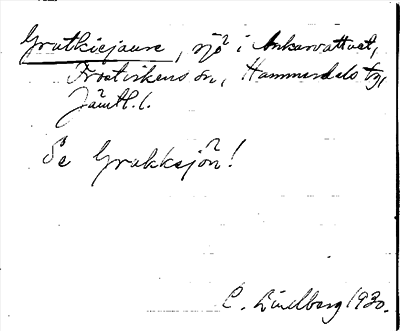 Gratkiejaure, sjö i Ankarvattnet,
Frostvikens sn, Hammerdals tg,
Jämtl. l.
Se Grakksjön!
C. Lindberg 1930.